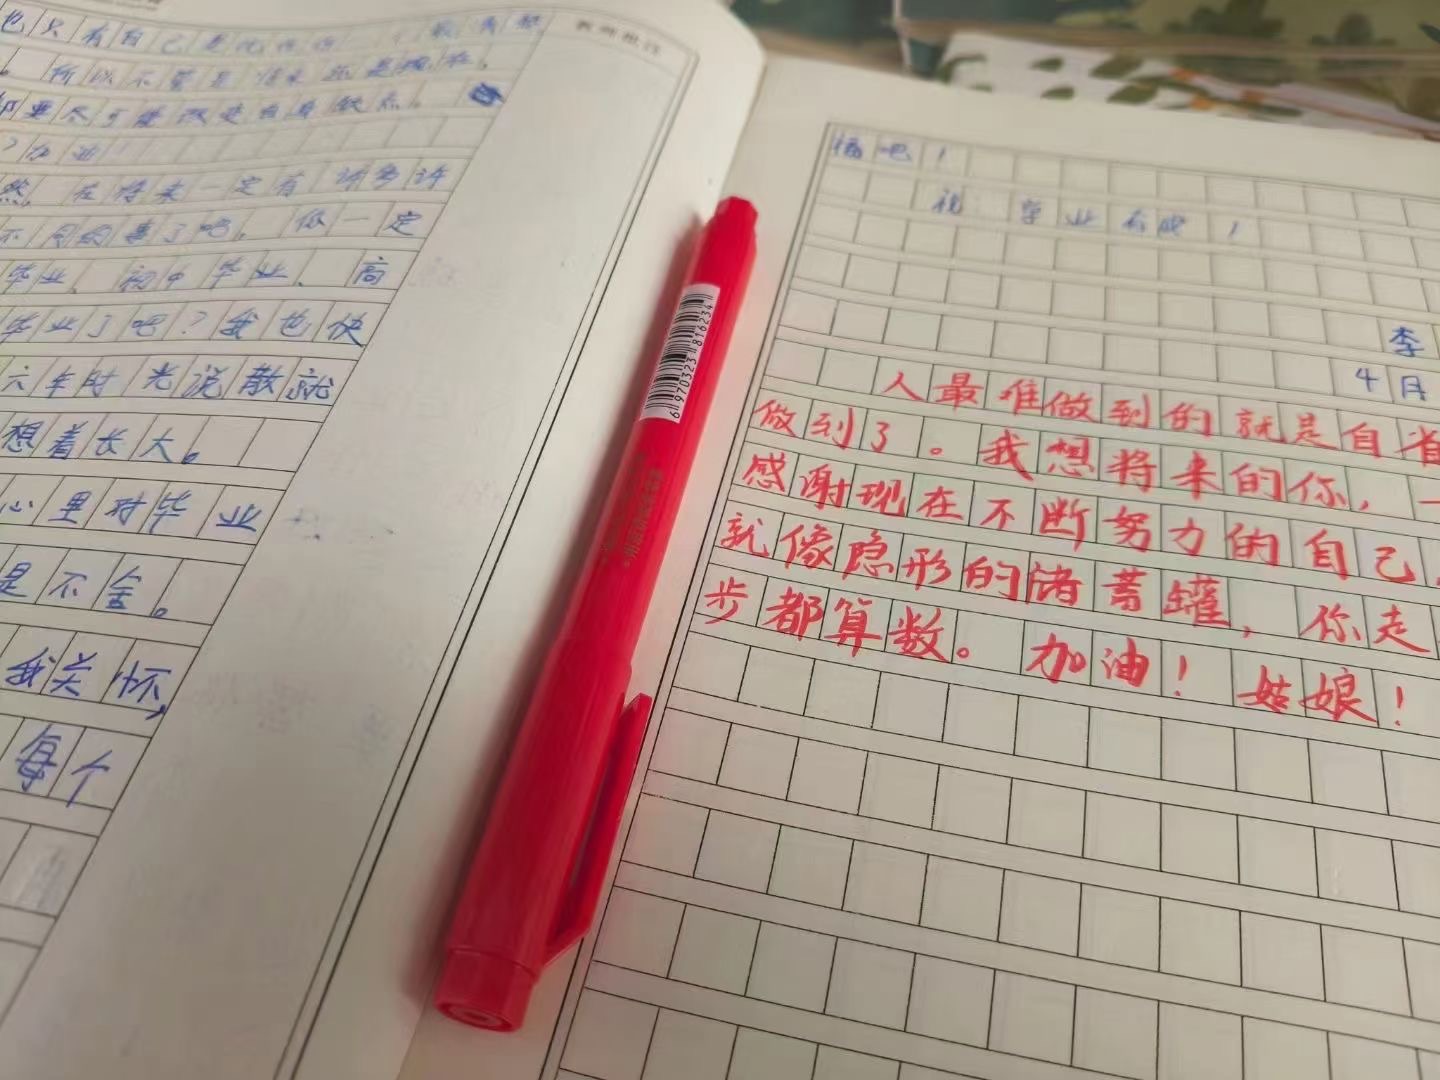 也只有自己
。所以不管是将来还是现在，
都要尽可能改走自身缺点。
？加油！
然，在将来一定有许多许
不同的事了吧，你一定
毕业、初中毕业、高
毕业了吧？我也快
六年时光说散就
想着长大。
心里对毕业
是不舍。
我关怀，
每个
教师批注
6 970323 816234
福吧！
祝 学业有成！
李
4月
人最难做到的就是自省
做到了。我想将来的你，一
感谢现在不断努力的自己，
就像隐形的储蓄罐，你走
步都算数。加油！姑娘！